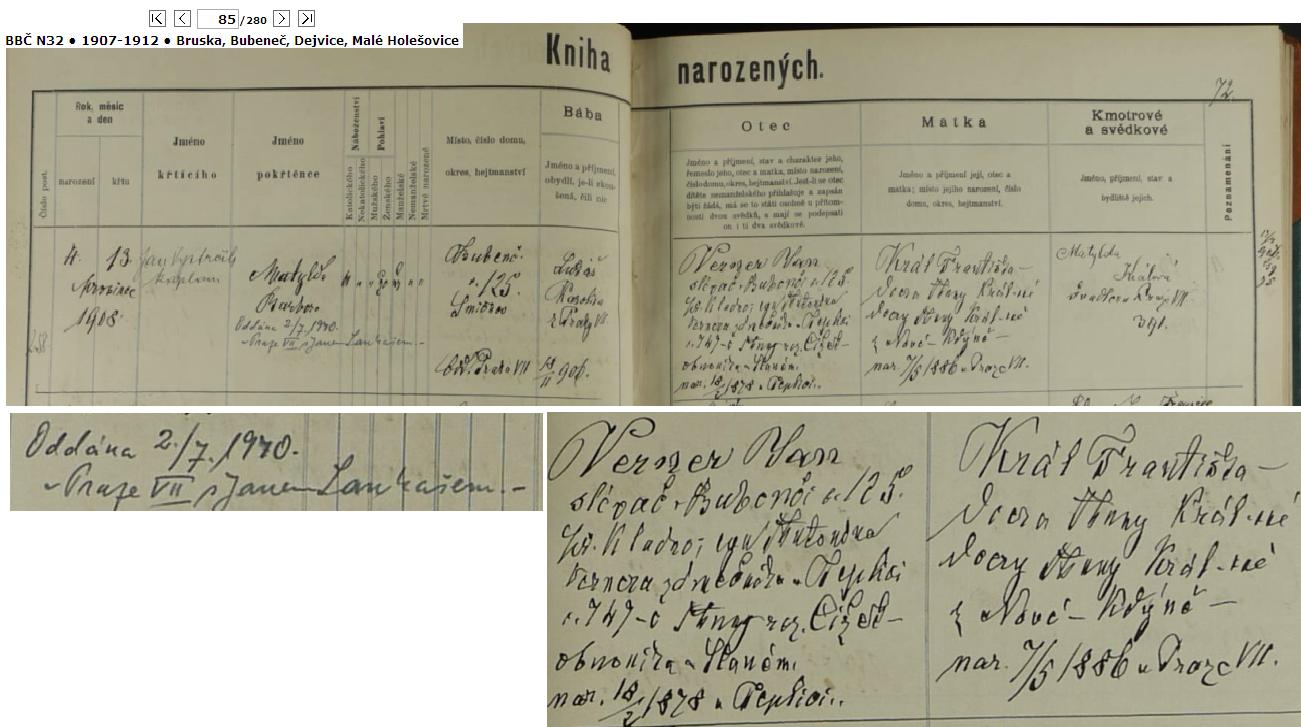 85 / 280
BBČ N32 • 1907-1912 • Bruska, Bubeneč, Dejvice, Malé Holešovice
Kniha narozených.
72.
Číslo post.
Rok, měsíc
a den
narození
křtu
Jméno
křtícího
Jméno
pokřtěnce
Náboženství
Katolického
Nekatolického
Pohlaví
Mužského
Ženského
Manželské
Nemanželské
Mrtvě narozené
Místo, číslo domu,
okres, hejtmanství
Bába
Jméno a příjmení,
obydlí, je-li zkou-
šená, čili nic
Otec
Jméno a příjmení, stav a charakter jeho,
řemeslo jeho, otec a matka, místo narození,
číslo domu, okres, hejtmanství. Jest-li se otec
dítěte nemanželského přihlašuje a zapsán
býti žádá, má se to státi osobně u přítom-
nosti dvou svědků, a mají se podepsati
on i ti dva svědkové.
Matka
Jméno a příjmení její, otec a
matka; místo jejího narození, číslo
domu, okres, hejtmanství.
Kmotrové
a svědkové
Jméno, příjmení, stav a
bydliště jejich.
Poznamenání
4. 13.
prosinec
1908
Jan
kaplan
Matylda
Barbora
Oddána 2./7. 1940.
v Praze VII s Janem
Bubeneč
č. 125.
Smíchov
Odd. Praha VII 18/11 906.
z Prahy VII.
Verner Jan
slévač v Bubenči č. 125.
syn Antonína
Vernera v Teplicích
č. 747 a Anny roz.
ve Slaném.
nar. 18/2 1878 v Teplici.
Král Františka
dcera Anny Král-ové
dcery Anny Král-ové
z Nové Kdyně
nar. 7/5 1886 v Praze VII.
Matylda
Králová
švadlena Praz. VII
Oddána 2./7. 1940.
v Praze VII s Janem
Verner Jan
slévač v Bubenči č. 125.
syn Antonína
Vernera v Teplicích
č. 747 a Anny roz.
ve Slaném.
nar. 18/2 1878 v Teplici.
Král Františka
dcera Anny Král-ové
dcery Anny Král-ové
z Nové Kdyně
nar. 7/5 1886 v Praze VII.